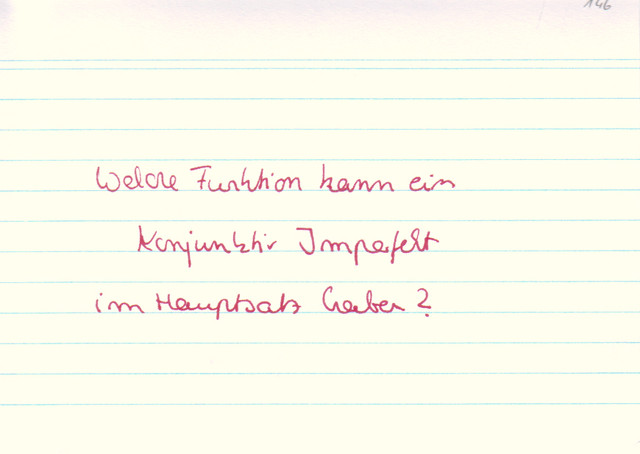 146
Welche Funktion kann ein
Konjunktiv Imperfekt
im Hauptsatz haben?